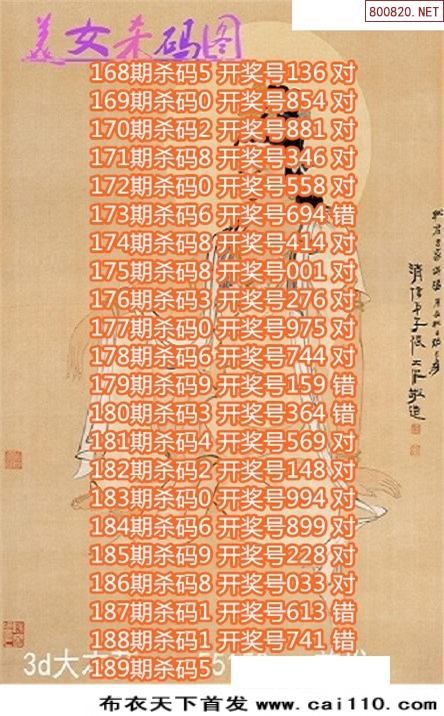 800820.NET
美女杀码图
168期杀码5 开奖号136 对
169期杀码0 开奖号854 对
170期杀码2 开奖号881 对
171期杀码8 开奖号346 对
172期杀码0 开奖号558 对
173期杀码6 开奖号694 错
174期杀码8 开奖号414 对
175期杀码8 开奖号001 对
176期杀码3 开奖号276 对
177期杀码0 开奖号975 对
178期杀码6 开奖号744 对
179期杀码9 开奖号159 错
180期杀码3 开奖号364 错
181期杀码4 开奖号569 对
182期杀码2 开奖号148 对
183期杀码0 开奖号994 对
184期杀码6 开奖号899 对
185期杀码9 开奖号228 对
186期杀码8 开奖号033 对
187期杀码1 开奖号613 错
188期杀码1 开奖号741 错
189期杀码5
3d大
布衣天下首发 www.cai110.com